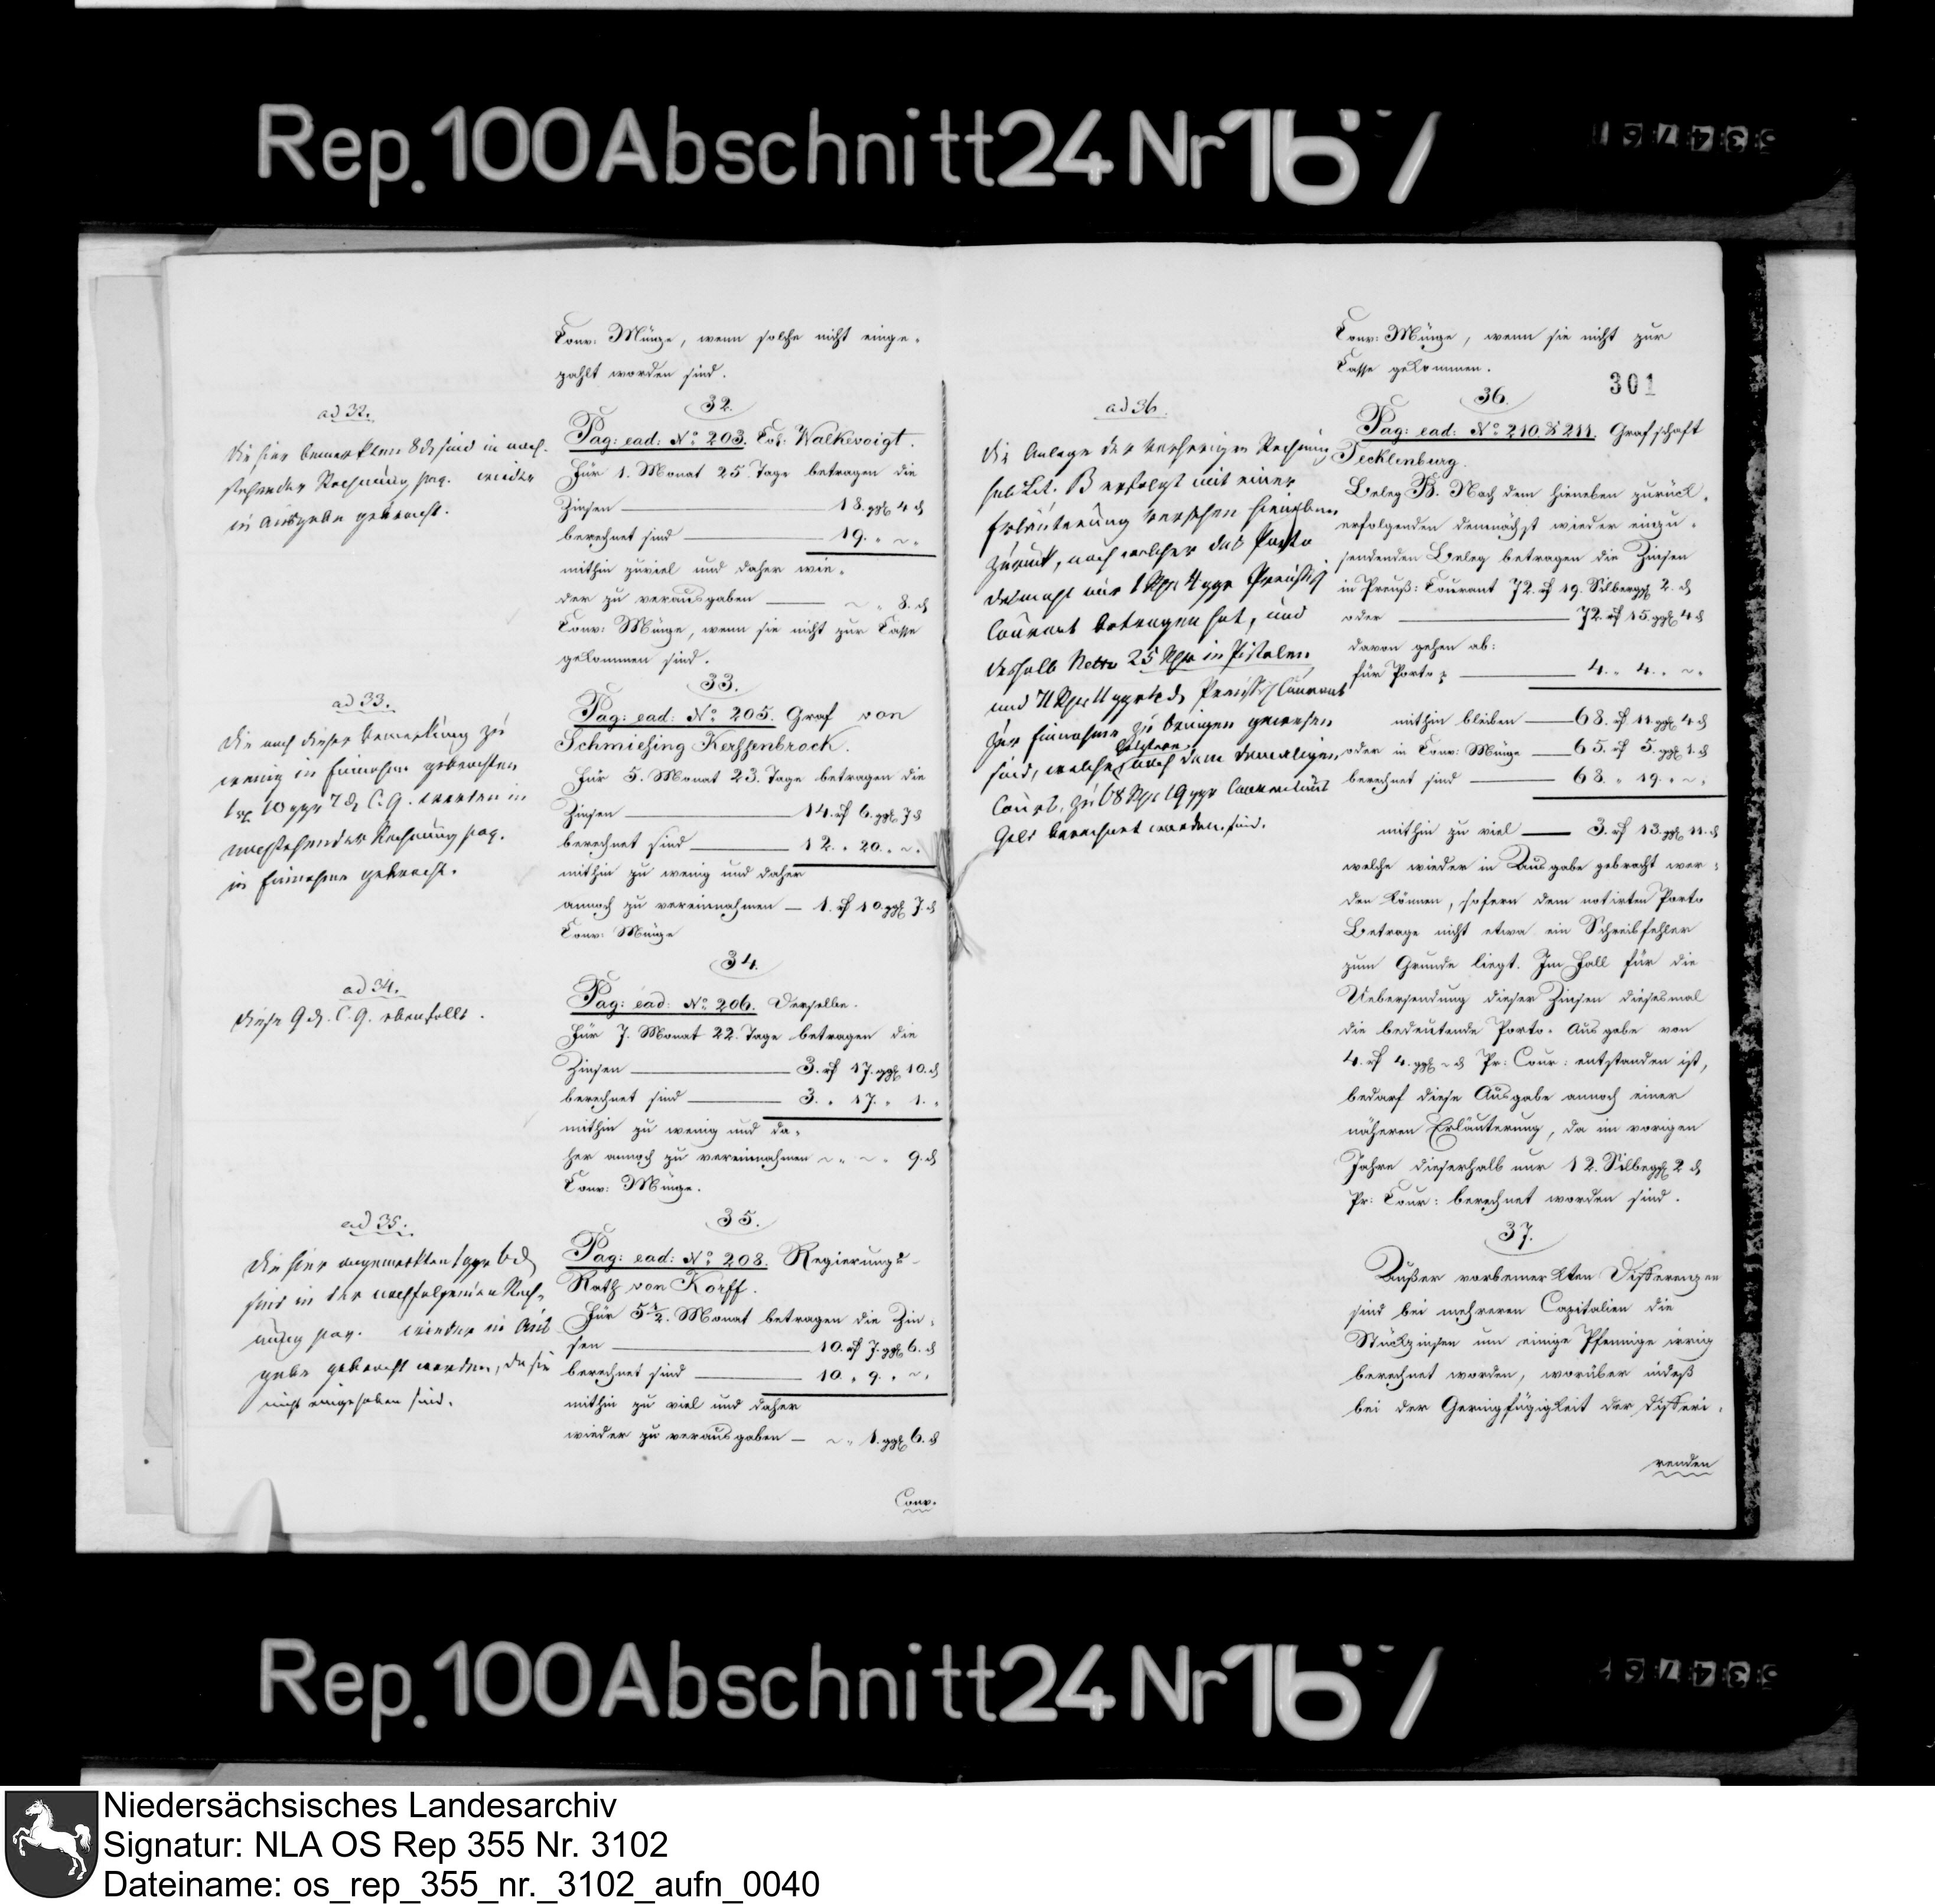 Rep. 100 Abschnitt 24 Nr 167
Conv: Münze, wenn solche nicht einge-
zahlt worden sind.
ad 32.
die hier bemerkten 8 d sind in nach-
stehender Rechnung pag. wieder
in Ausgabe gebracht.
32.
Pag: ead: No 203. Col: Walkevoigt.
Für 1. Monat 25 Tage betragen die
Zinsen 18. ggl 4 d
berechnet sind 19. " ~ "
mithin zuviel und daher wie-
der zu verausgaben ~ " 8. d
Conv: Münze, wenn sie nicht zur Casse
gekommen sind.
ad 33.
Die nach dieser Bemerkung zu
wenig in Einnahme gebrachten
1 rf 10 ggr 7 d C. G. werden in
nachstehender Rechnung pag.
in Einnahme gebracht.
33.
Pag: ead: No 205. Graf von
Schmiesing Kerssenbrock.
Für 5. Monat 23. Tage betragen die
Zinsen 14. rf 6. ggl 7 d
berechnet sind 12. " 20. " ~ "
mithin zu wenig und daher
annoch zu vereinnahmen — 1. rf 10 ggl 7. d
Conv: Münze
ad 34.
diese 9 d. C. G. ebenfalls.
34.
Pag: ead: No 206. Derselbe.
Für 7. Monat 22. Tage betragen die
Zinsen 3. rf 17. ggl 10. d
berechnet sind 3. " 17. " 1. "
mithin zu wenig und da-
her annoch zu vereinnahmen ~ " ~ " 9. d
Conv: Münze.
ad 35.
Die hier angemerkten 1 ggr 6 d
sind in der nachfolgenden Rech-
nung pag. wieder in Aus
gabe gebracht worden, da sie
nicht eingehoben sind.
35.
Pag: ead: No 208. Regierungs-
Rath von Korff.
Für 5 1/2. Monat betragen die Zin-
sen 10. rf 7. ggl 6. d
berechnet sind 10. " 9. " ~ "
mithin zu viel und daher
wieder zu verausgaben — ~ " 1. ggl 6. d
Conv.
Conv: Münze, wenn sie nicht zur
Casse gekommen.
301
ad 36.
Die Anlage der vorherigen Rechnung
sub Lit. B erfolgt mit einer
Erläuterung versehen hieneben
zurück, nach welcher das Porto
diesmahl nur 1 Rthr 4 ggr Preußisch
Courant betragen hat, und
deshalb Netto 25 Rthr in Pistolen
und 71 Rthr 11 ggr 4 d Preussisch Courant
zur Einnahme zu bringen gewesen
sind, welche letztere nach dem damaligen
Cours, zu 68 Rthr 19 ggr Conventions
Geld berechnet worden sind.
36.
Pag: ead: No 210. & 211. Grafschaft
Tecklenburg.
Beleg B. Nach dem hieneben zurück-
erfolgenden demnächst wieder einzu-
sendenden Beleg betragen die Zinsen
in Preuß: Courant 72. rf 19. Silbergl 2. d
oder 72. rf 15. ggl 4 d
davon gehen ab:
für Porto 4. " 4. " ~ "
mithin bleiben 68. rf 11. ggl 4 d
oder in Conv: Münze 65. rf 5. ggl 1. d
berechnet sind 68. " 19. " ~ "
mithin zu viel 3. rf 13. ggl 11. d
welche wieder in Ausgabe gebracht wer-
den können, sofern dem notirten Porto
Betrage nicht etwa ein Schreibfehler
zum Grunde liegt. Im Fall für die
Uebersendung dieser Zinsen diesesmal
die bedeutende Porto-Ausgabe von
4. rf 4. ggl ~ d Pr: Cour: entstanden ist,
bedarf diese Ausgabe annoch einer
näheren Erläuterung, da im vorigen
Jahre dieserhalb nur 12. Silbergl 2 d
Pr: Cour: berechnet worden sind.
37.
Außer vorbemerkten Differenzen
sind bei mehreren Capitalien die
Stückzinsen um einige Pfennige irrig
berechnet worden, worüber indeß
bei der Geringfügigkeit der differi-
renden
Rep. 100 Abschnitt 24 Nr 167
Niedersächsisches Landesarchiv
Signatur: NLA OS Rep 355 Nr. 3102
Dateiname: os_rep_355_nr._3102_aufn_0040